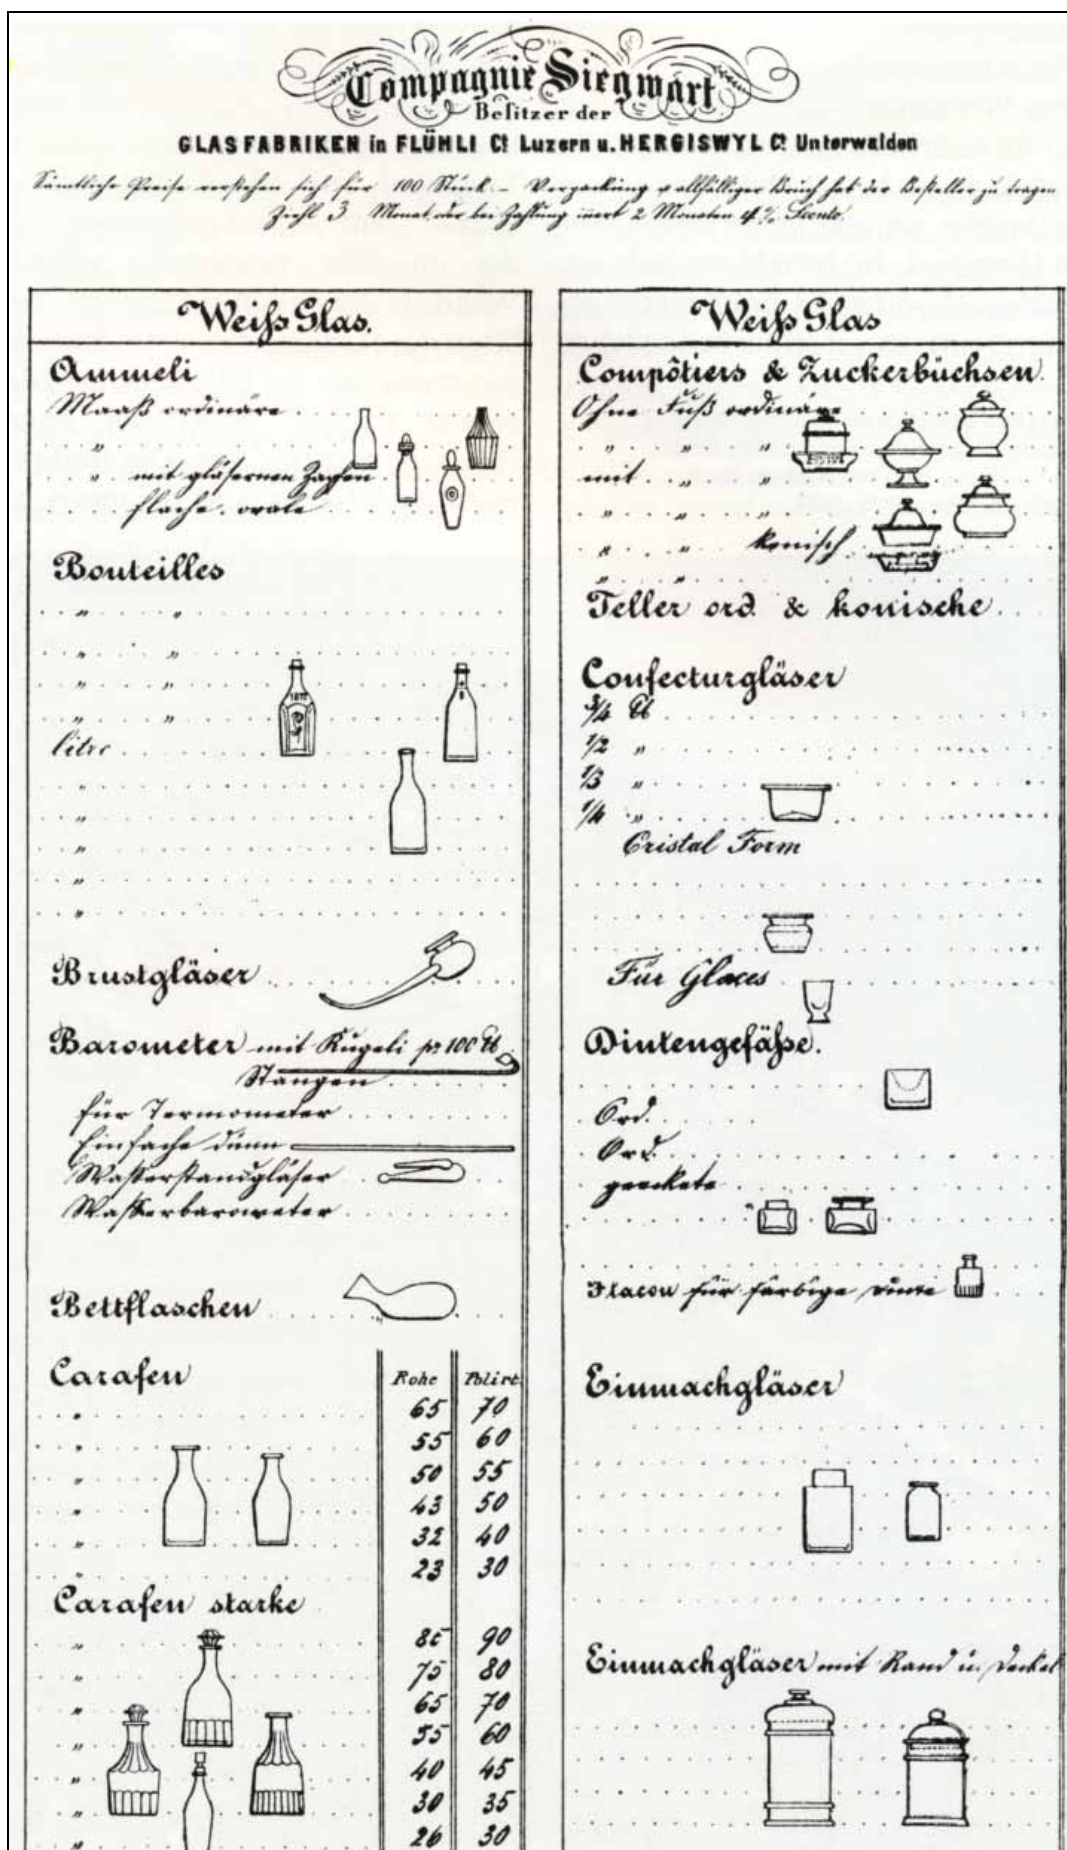 Compagnie Siegwart
Besitzer der
GLASFABRIKEN in FLÜHLI Ct. Luzern u. HERGISWYL Ct. Unterwalden
Sämtliche Preise verstehen sich für 100 Stück – Verpackung & allfälliger Bruch hat der Besteller zu tragen
Ziehl 3 Monat oder bei Zahlung innert 2 Monaten 4% Sconto.
Weiß Glas.
Ammeli
Maaß ordinäre
"
" mit gläsernen Zapfen
flache ovale
Bouteilles
" "
" "
" "
" "
litre
"
"
"
"
"
Brustgläser
Barometer mit Kugeli pr 100 ℔
Stangen
für Termometer
Einfache dünn
Wasserstandgläser
Wasserbarometer
Bettflaschen
Carafen Rohe Polirt
" 65 70
" 55 60
" 50 55
" 43 50
" 32 40
" 23 30
Carafen starke
" 85 90
" 75 80
" 65 70
" 55 60
" 40 45
" 30 35
" 26 30
Weiß Glas
Compôtiers & Zuckerbüchsen
Ohne Fuß ordinäre
" " "
mit " "
" " "
" " konisch
" "
Teller ord. & konische
Confecturgläser
3/4 ℔
1/2 "
1/3 "
1/4 "
Cristal Form
Für Glaces
Dintengefäße.
Ord.
Ord.
geeckete
Flacon für farbige Dinte
Einmachgläser
Einmachgläser mit Rand u. Deckel